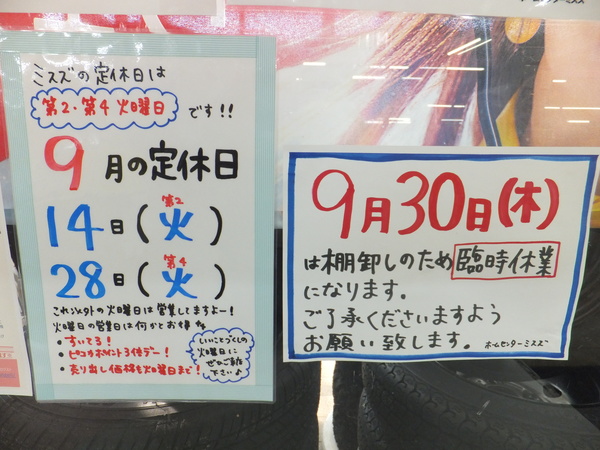 ホームセンターミスズ
ミスズの定休日は
第2・第4火曜日
です!!
9月の定休日
14日(火)
第2
28日(火)
第4
これ以外の火曜日は営業してますよー!
火曜日の営業日は何かとお得
・すいてる!
・ピコカポイント3倍デー!
・売り出し価格も火曜日まで!
いいことづくしの
火曜日に
ぜひご来店
下さい♪
9月30日(木)
は棚卸しのため臨時休業
になります。
ご了承くださいますよう
お願い致します。
ホームセンターミスズ